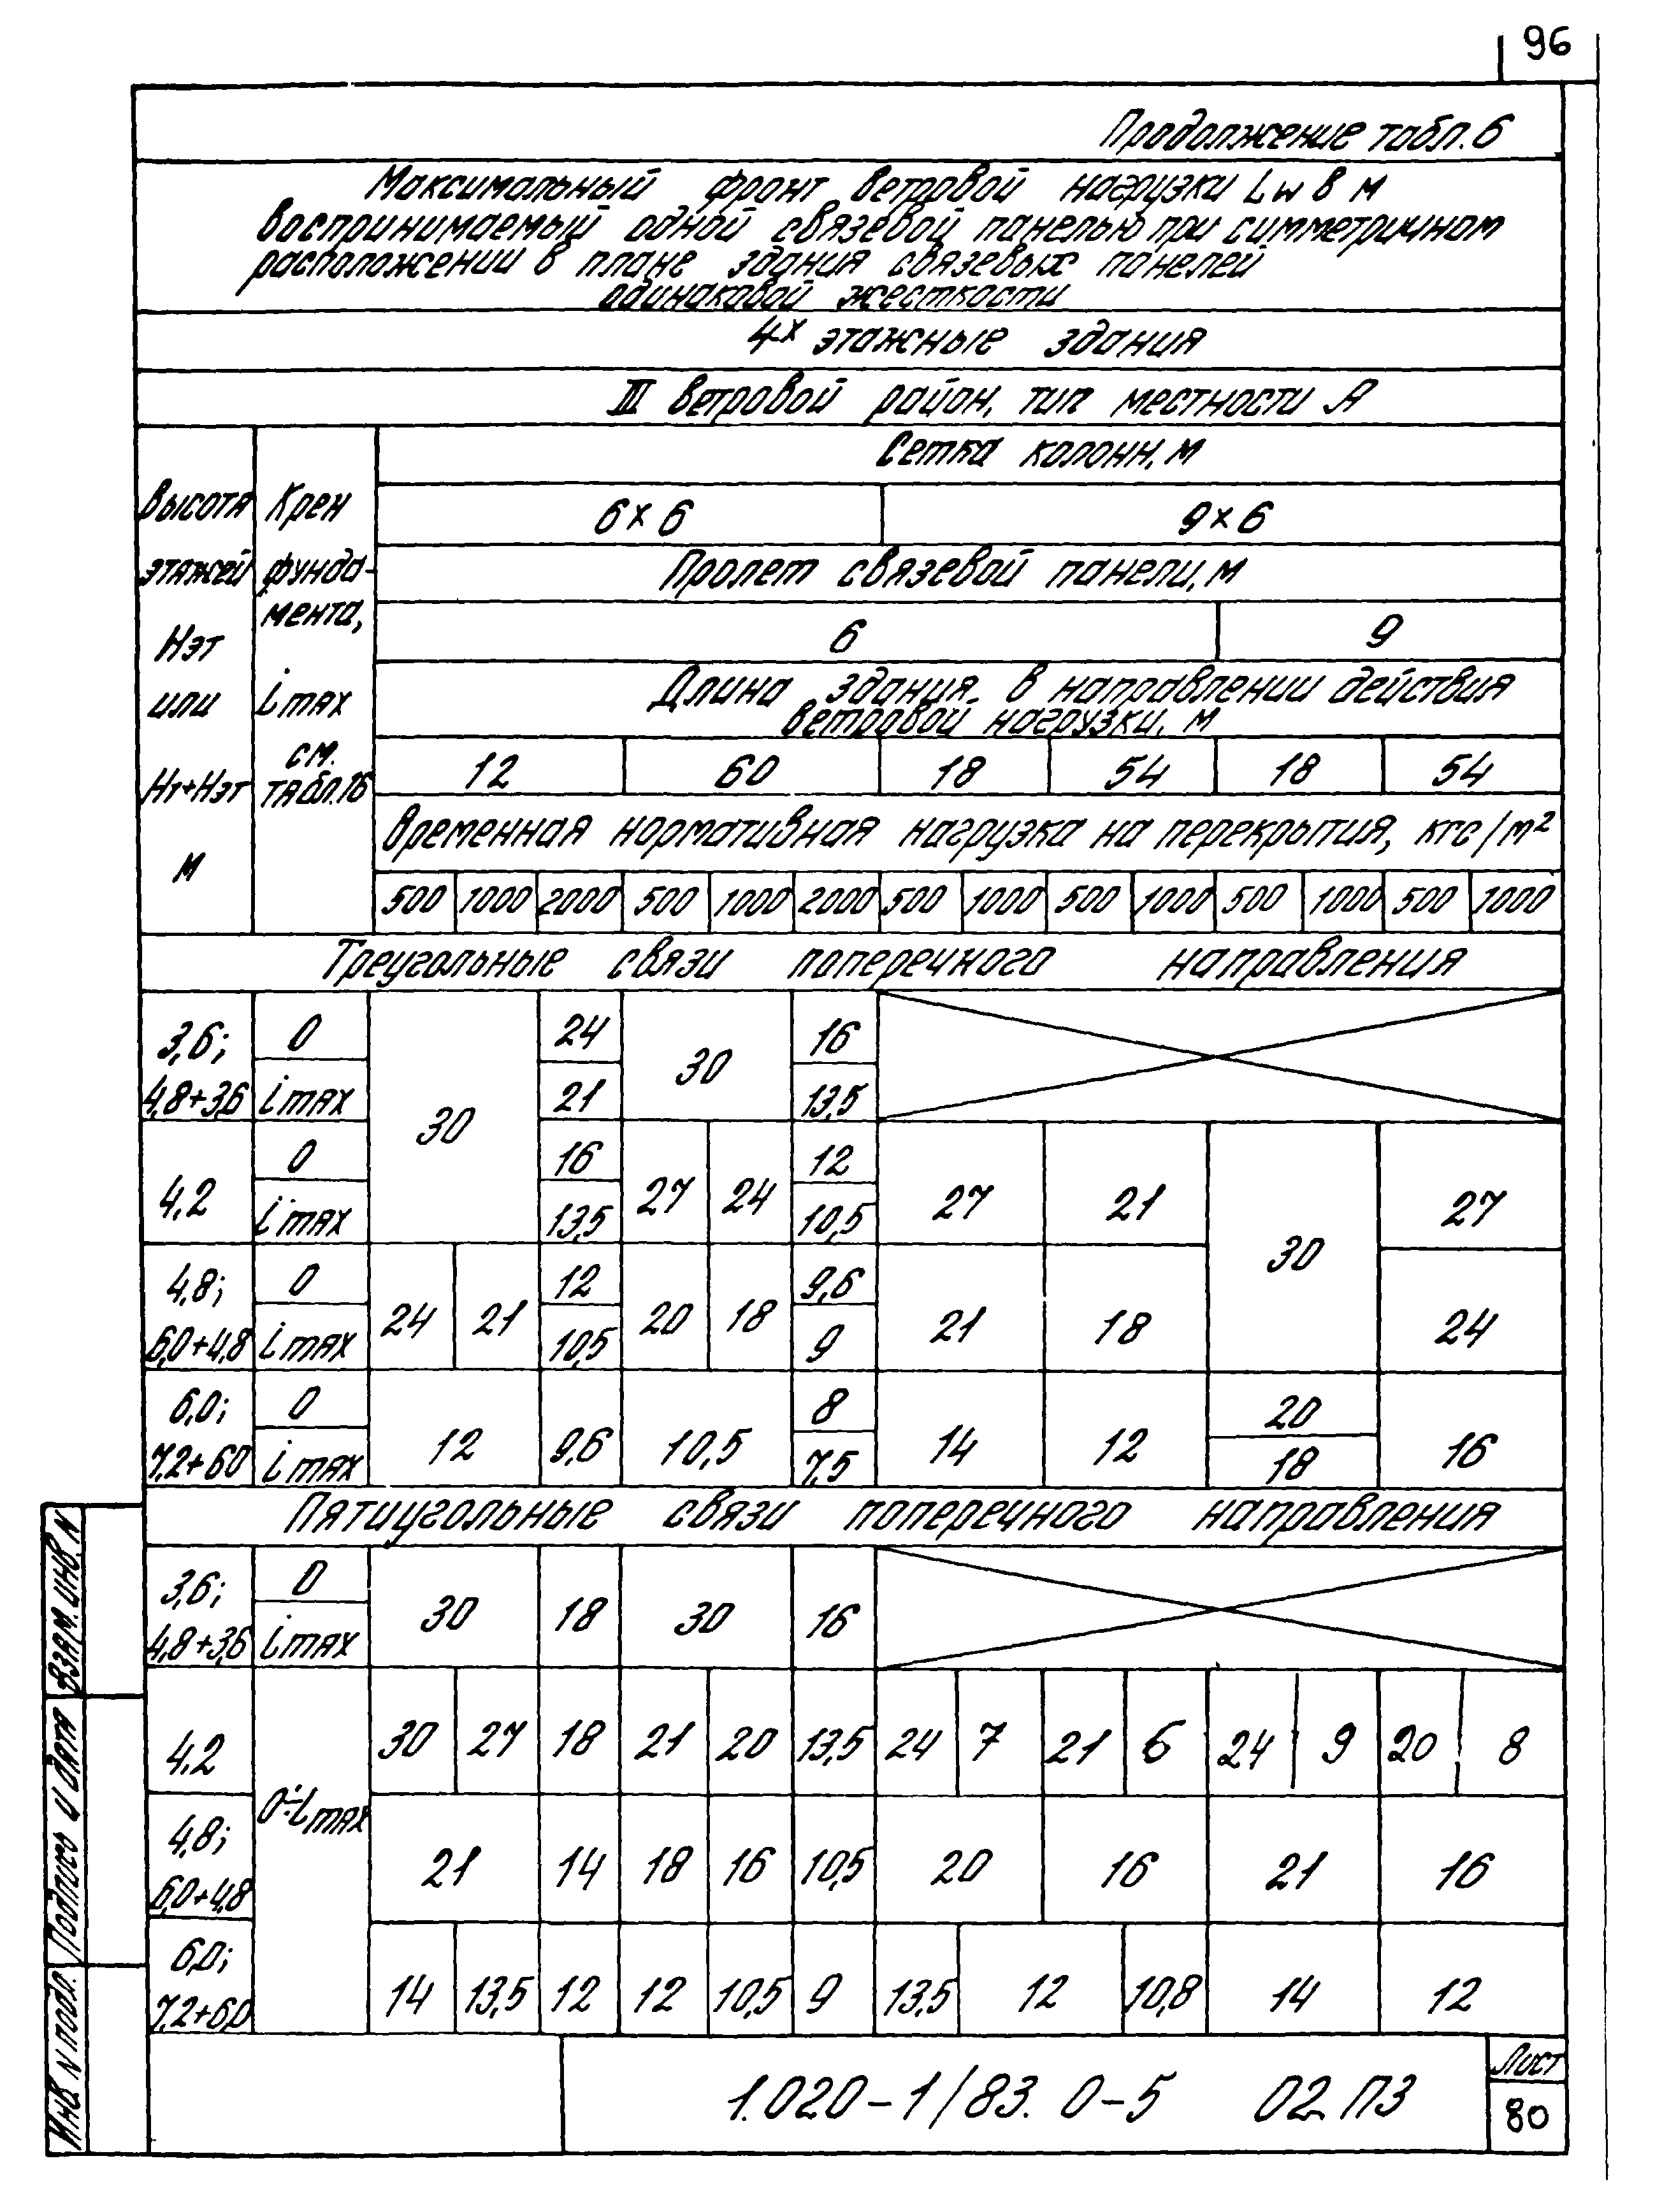 96
Продолжение табл. 6
Максимальный фронт ветровой нагрузки Lw в м
воспринимаемый одной связевой панелью при симметричном
расположении в плане здания связевых панелей
одинаковой жесткости
4х этажные здания
III ветровой район, тип местности А
Высота этажей Нэт или Н1+Нэт м
Крен фунда-мента, imax см. табл.16
Сетка колонн, м
6×6 9×6
Пролет связевой панели, м
6 9
Длина здания в направлении действия
ветровой нагрузки, м
12 60 18 54 18 54
Временная нормативная нагрузка на перекрытия, кгс/м²
500 1000 2000 500 1000 2000 500 1000 500 1000 500 1000 500 1000
Треугольные связи поперечного направления
3,6; 0 24 16
30 30
4,8+3,6 imax 21 13,5
0 16 12
4,2 27 24 27 21 27
imax 13,5 10,5
30
4,8; 0 12 9,6
24 21 20 18 21 18 24
6,0+4,8 imax 10,5 9
6,0; 0 8 20
12 9,6 10,5 14 12 16
7,2+60 imax 7,5 18
Пятиугольные связи поперечного направления
3,6; 0
30 18 30 16
4,8+3,6 imax
4,2 30 27 18 21 20 13,5 24 7 21 6 24 9 20 8
0÷imax
4,8;
21 14 18 16 10,5 20 16 21 16
6,0+4,8
6,0;
14 13,5 12 12 10,5 9 13,5 12 10,8 14 12
7,2+6,0
Взам. инв. N
Подпись и дата
Инв N подл.
1.020-1/83. 0-5 02 ПЗ
Лист
80